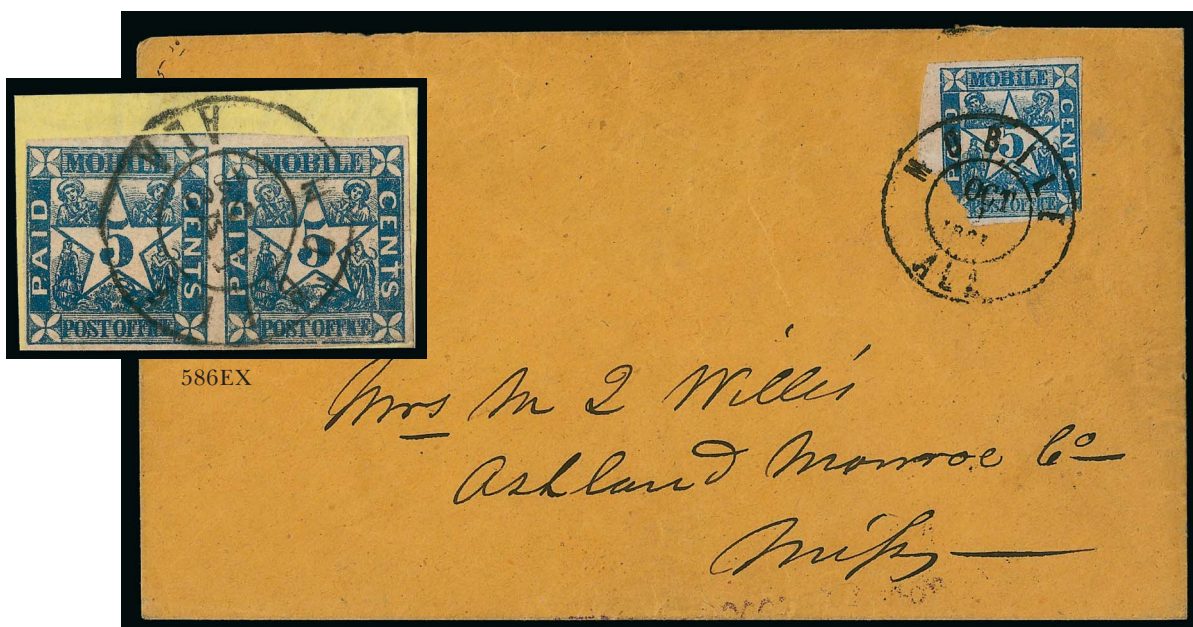 MOBILE
PAID 5 CENTS
POST OFFICE
MOBILE
PAID 5 CENTS
POST OFFICE
ALA
586EX
MOBILE
PAID 5 CENTS
POST OFFICE
MOBILE
OCT
1861
ALA
Mrs M Q Willis
Ashland Monroe Co
Miss